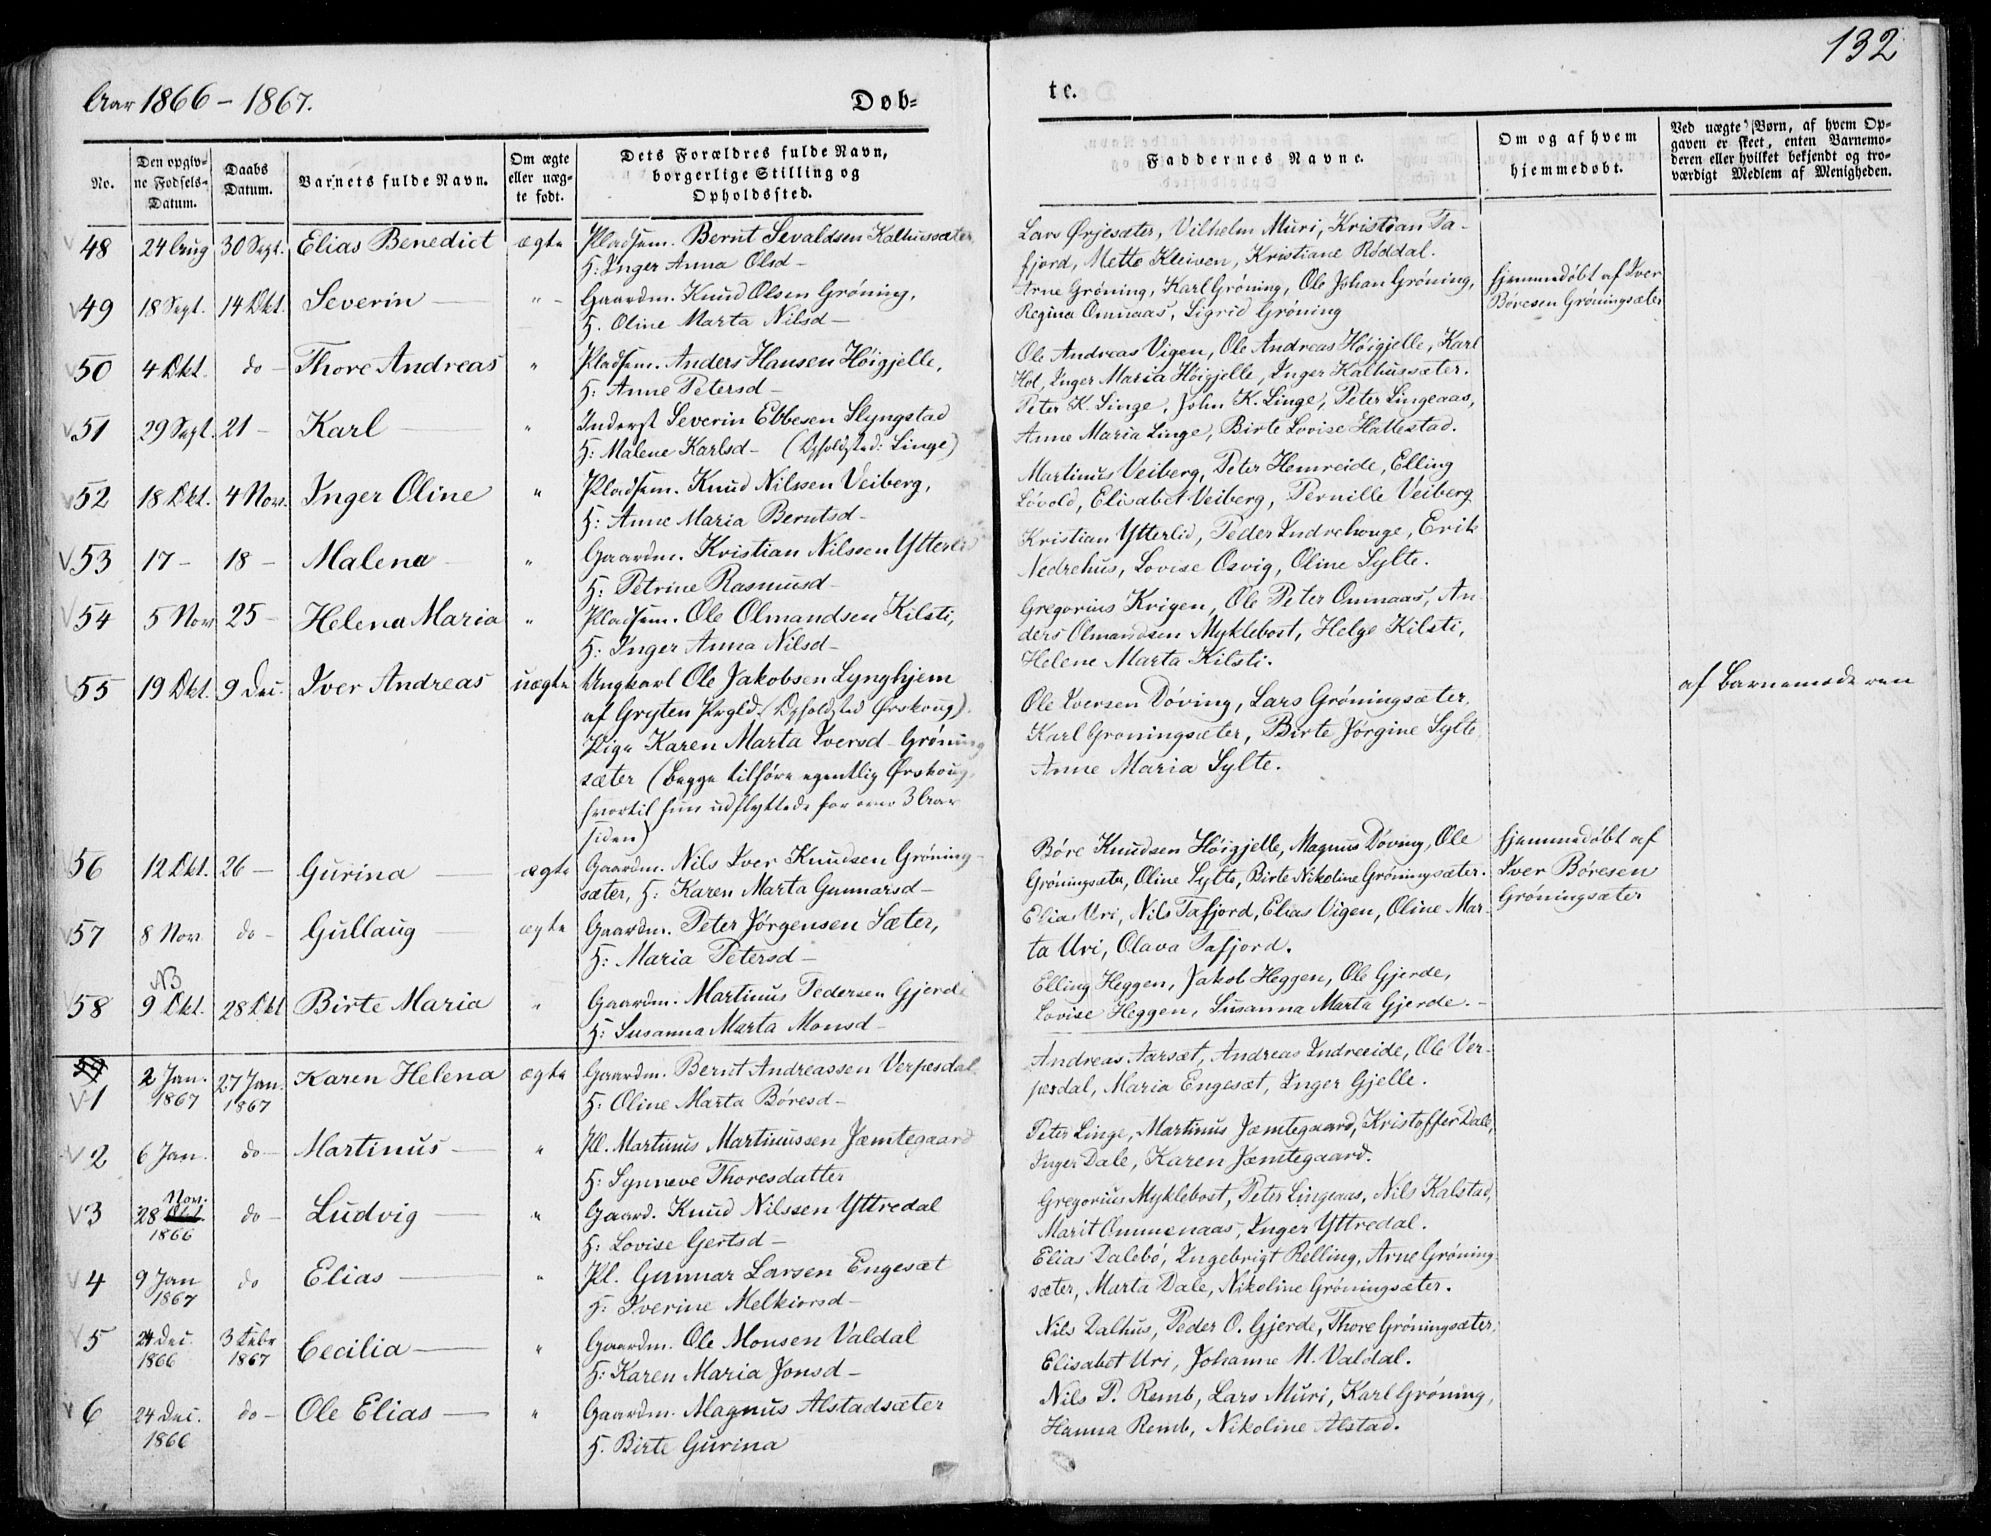 132
Aar 1866 - 1867.
Døb-
te.
No.
Den opgiv-
ne Fødsels-
Datum.
Daabs
Datum.
Barnets fulde Navn.
Om ægte
eller uæg-
te født.
Dets Forældres fulde Navn,
borgerlige Stilling og
Opholdssted.
Faddernes Navne.
Om og af hvem
hjemmedøbt.
Ved uægte Børn, af hvem Op-
gaven er skeet, enten Barnemo-
deren eller hvilket bekjendt og tro-
værdigt Medlem af Menigheden.
48 24 Aug 30 Sept. Elias Benedict ægte Pladsm. Bernt Sevaldsen Kalhussæter,
H: Inger Anna Olsd-
Lars Ørjesæter, Vilhelm Muri, Kristian Ta-
fjord, Mette Kleiven, Kristiane Røddal.
49 18 Sept. 14 Okt. Severin - " - Gaardm. Knud Olsen Grøning,
H. Oline Marta Nilsd-
Arne Grøning, Karl Grøning, Ole Johan Grøning,
Regina Omnaas, Sigrid Grøning
Hjemmedøbt af Iver
Børesen Grøningsæter
50 4 Okt. do - Thore Andreas " Pladsm. Anders Hansen Høigjelle,
H: Anne Petersd-
Ole Andreas Vigen, Ole Andreas Høigjelle, Karl
Hol, Inger Maria Høigjelle, Inger Kalhussæter.
51 29 Sept. 21 - Karl " Inderst Severin Ebbesen Slyngstad
H: Malene Karlsd- (Opholdssted: Linge)
Peter K. Linge, John K. Linge, Peter Lingeaas,
Anne Maria Linge, Birte Lovise Hattestad.
52 18 Okt. 4 Nov. Inger Oline " Pladsm. Knud Nilssen Veiberg,
H: Anne Maria Berntsd-
Martinus Veiberg, Peter Hemreide, Elling
Løvold, Elisabet Veiberg, Pernille Veiberg
53 17 - 18 - Malena " Gaardm. Kristian Nilssen Ytterlid
H: Petrine Rasmusd-
Kristian Ytterlid, Peder Indrehouge, Erik
Nedrehus, Lovise Osvig, Oline Sylte.
54 5 Nov 25 - Helena Maria " Pladsm. Ole Olmandsen Kilsti,
H: Inger Anna Nilsd-
Gregorius Krigen, Ole Peter Omnaas, An-
ders Olmandsen Myklebost, Helge Kilsti,
Helene Marta Kilsti.
55 19 Okt. 9 Dec. Iver Andreas uægte Ungkarl Ole Jakobsen Lynghjem
af Gryten Prgld. (Opholdssted Ørskoug)
Pige Karen Marta Iversd- Grøning
sæter (begge tilføre egentlig Ørskoug,
hvortil hun udflyttede for over 3 Aar
siden)
Ole Iversen Døving, Lars Grøningsæter,
Karl Grøningsæter, Birte Jørgine Sylte
Anne Maria Sylte.
af Barnemoderen
56 12 Okt. 26 - Gurina - ægte Gaardm. Nils Iver Knudsen Grøning-
sæter, H: Karen Marta Gunnarsd-
Børe Knudsen Høigjelle, Magnus Døving, Ole
Grøningsæter, Oline Sylte, Birte Nikoline Grøningsæter.
Hjemmedøbt af
Iver Børesen
Grøningsæter
57 8 Nov. do - Gullaug - ægte Gaardm. Peter Jørgensen Sæter,
H: Maria Petersd-
Elias Uri, Nils Tafjord, Elias Vigen, Oline Mar-
ta Uri, Olava Tafjord.
NB
58 9 Okt. 28 Okt Birte Maria " Gaardm. Martinus Pedersen Gjerde
H: Susanna Marta Monsd-
Elling Heggen, Jakob Heggen, Ole Gjerde,
Lovise Heggen, Susanna Marta Gjerde. -
59
1 2 Jan. 1867 27 Jan. 1867 Karen Helena ægte Gaardm. Bernt Andreassen Verpesdal
H: Oline Marta Børesd-
Andreas Aarsæt, Andreas Indreeide, Ole Ver-
pesdal, Maria Engesæt, Inger Gjelle.
2 6 Jan. do - Martinus - " Pl. Martinus Martinussen Jæmtegaard
H: Synneve Thoresdatter
Peter Linge, Martinus Jæmtegaard, Kristoffer Dale,
Inger Dale, Karen Jæmtegaard.
3 28 Nov. 1866 do - Ludvig - " Gaard. Knud Nilssen Yttredal
H: Lovise Gertsd-
Gregorius Myklebost, Peter Lingeaas, Nils Kalstad,
Marit Ommenaas, Inger Yttredal.
4 9 Jan 1867 do Elias - " Pl. Gunnar Larsen Engesæt
H: Iverine Melkiorsd-
Elias Dalebø, Ingebrigt Relling, Arne Grøning-
sæter, Marta Dale, Nikoline Grøningsæter.
5 24 Dec. 1866 3 Febr 1867 Cecilia - " Gaardm. Ole Monsen Valdal
H: Karen Maria Jonsd-
Nils Dalhus, Peder O. Gjerde, Thore Grøningsæter,
Elisabet Uri, Johanne M. Valdal.
6 24 Dec. 1866 do - Ole Elias - " Gaardm. Magnus Alstadsæter
H. Birte Gurina
Nils P. Remb, Lars Muri, Karl Grøning,
Hanna Remb, Nikoline Alstad.